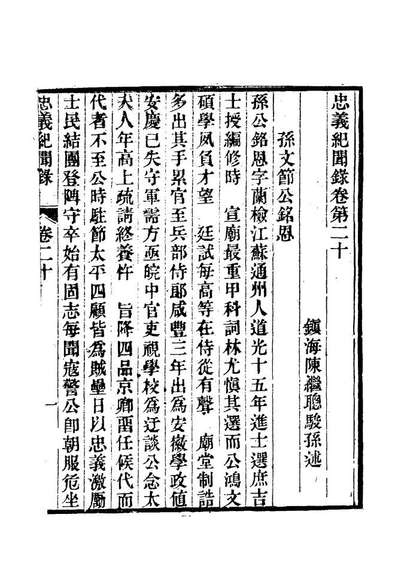 忠義紀聞錄卷第二十
鎮海陳繼聰駿孫述
孫文節公銘恩
孫公銘恩字蘭檢江蘇通州人道光十五年進士選庶吉
士授編修時 宣廟最重甲科詞林尤愼其選而公鴻文
碩學夙負才望 廷試每高等在侍從有聲 廟堂制誥
多出其手累官至兵部侍郞咸豐三年出爲安徽學政値
安慶已失守軍需方亟皖中官吏視學校爲迂談公念太
夫人年高上疏請終養忤 旨降四品京卿畱任候代而
代者不至公時駐節太平四顧皆爲賊壘日以忠義激勵
士民結團登陴守卒始有固志每聞寇警公卽朝服危坐
忠義紀聞錄 卷二十 一